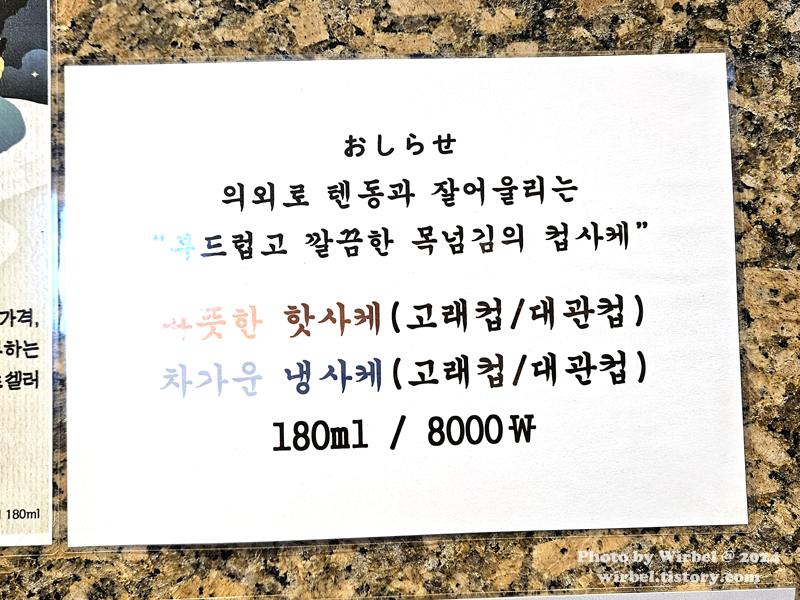 おしらせ
의외로 텐동과 잘어울리는
“부드럽고 깔끔한 목넘김의 컵사케”
따뜻한 핫사케(고래컵/대관컵)
차가운 냉사케(고래컵/대관컵)
180ml / 8000₩
가격,
하는
셀러
180ml
Photo by Wirbel @ 2024
wirbel.tistory.com